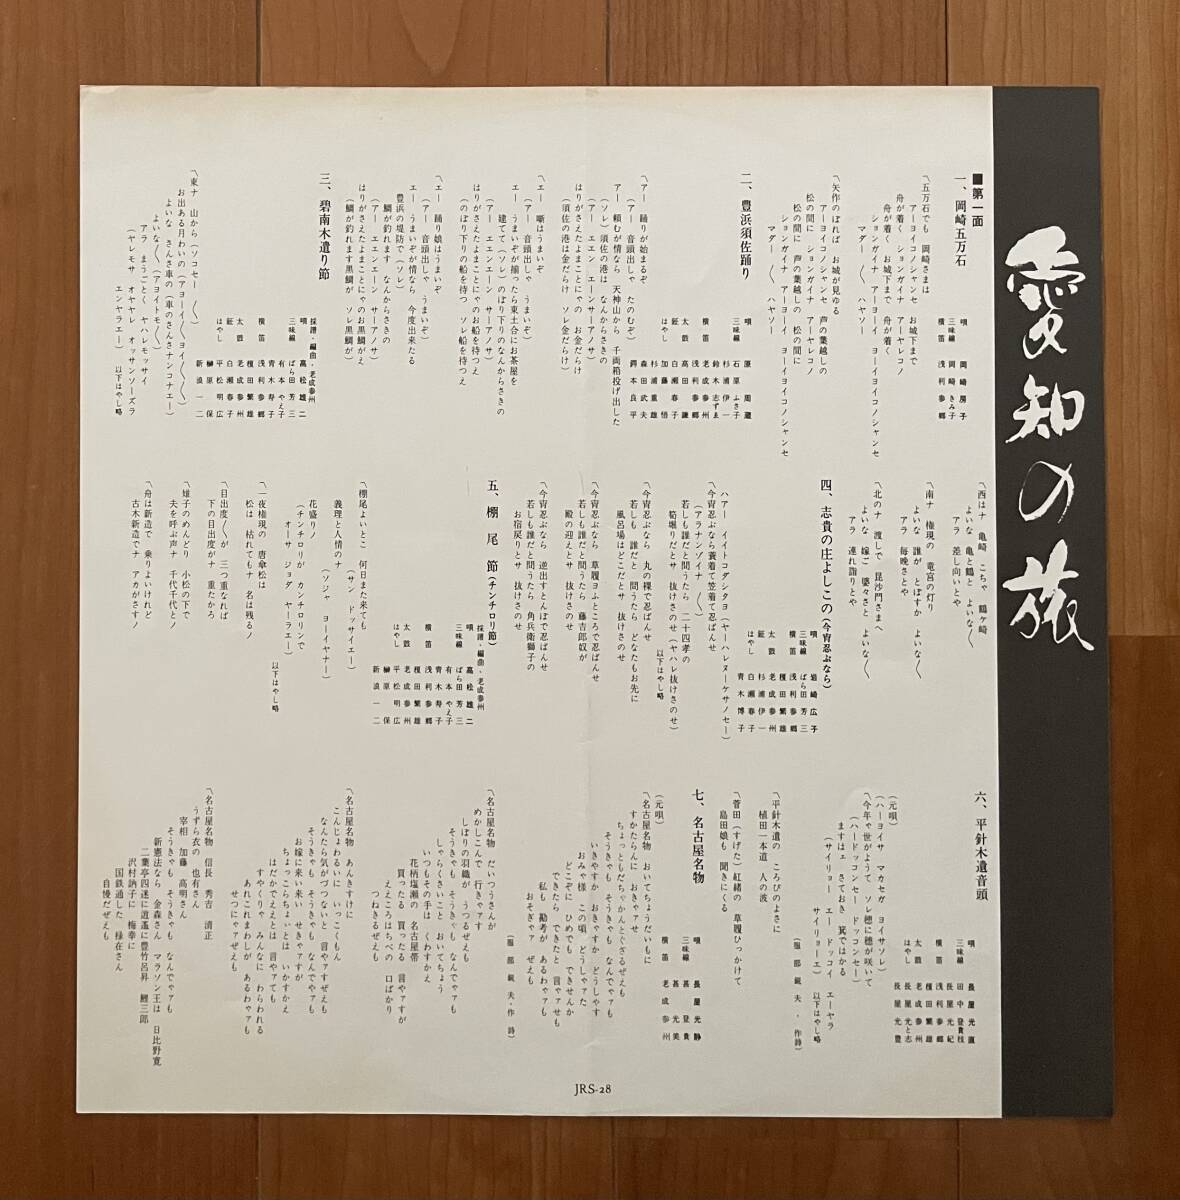 愛知の旅
■第一面
一、岡崎五万石
唄 岡崎房子
三味線 岡崎きみ子
横笛 浅利参郷
〽五万石でも 岡崎さまは
アーヨイコノシャンセ お城下まで
舟が着く ションガイナ アーヤレコノ
舟が着く お城下まで 舟が着く
ションガイナ アーヨーイ ヨーイヨイコノシャンセ
マダー〳〵 ハヤソー
〽矢作のぼれば お城が見ゆる
アーヨイコノシャンセ 芦の葉越しの
松の間に ションガイナ アーヤレコノ
松の間に 芦の葉越しの 松の間に
ションガイナ アーヨーイ ヨーイヨイコノシャンセ
マダー〳〵 ハヤソー
二、豊浜須佐踊り
唄 原 周蔵
三味線 石原ふさ子
杉浦伊一
鈴木志ずゑ
横笛 老成参州
浅利参郷
太鼓 高田謙
鉦 白瀬春子
はやし 加藤悟
杉浦重雄
森田武夫
鍔本良平
〽アー 踊りが始まるぞ
（アー 音頭出しゃ たのむぞ）
アー 頼むが情なら 天神山から 千両箱投げ出した
（ソレ）須佐の港は なんからさきの
（アー エエン エーンサーアノサ）
はりがさえたよまことにゃの お金だらけ
（須佐の港は金だらけ ソレ金だらけ）
〽エー 噺はうまいぞ
（アー 音頭出しゃ うまいぞ）
エー うまいぞが揃ったら東土合にお茶屋を
建てて（ソレ）のぼり下りのなんからさきの
（アー エエンエーンサーアノサ）
はりがさえたよまことにゃのお船を待つ
（のぼり下りの船を待つ ソレ船を待つ
〽エー 踊り娘はうまいぞ
（アー 音頭出しゃ うまいぞ）
エー うまいぞが情なら 今度出来たる
豊浜の堤防で（ソレ）
鯛が釣れます なんからさきの
（アー エエン エーンサーアノサ）
はりがさえたよまことにゃのお黒鯛がえ
（鯛が釣れます黒鯛が ソレ黒鯛が）
三、碧南木遣り節
採譜・編曲・老成参州
唄 高松雄二
三味線 ばら田芳三
有本やえ子
青木寿子
横笛 浅利参郷
榎田繁雄
太鼓 老成参州
鉦 白瀬春子
はやし 平松明広
榊原保
新浪一二
〽東ナ 山から（ソコセー 〳〵）
お出ある月わいの（アヨーイ〳〵ヨイ〳〵〳〵）
よいな さんさ車の（車のさんさナンコナエー）
よいな〳〵（アヨイトモ〳〵）
アラ まうごとく ヤハレモッサイ
（ヤレモサ オヤヤレ オッサンソーズラ
エンヤラエー） 以下はやし略
〽西はナ 亀崎 こちゃ 鶴ケ崎
よいな 亀と鶴と よいな〳〵
アラ 差し向いとや
〽南ナ 権現の 竜宮の灯り
よいな 誰が とぼすか よいな〳〵
アラ 毎晩さとや
〽北のナ 渡しで 毘沙門さまへ
よいな 嫁ご 婆々さと よいな〳〵
アラ 連れ詣りとや
四、志貴の庄よしこの（今宵忍ぶなら）
唄 岩崎広子
三味線 ばら田芳三
横笛 浅利参郷
榎田繁雄
太鼓 老成参州
鉦 杉浦伊一
はやし 白瀬春子
青木博子
ハアー イイトコダシタヨ（ヤーハレヌーケサノセー）
〽今宵忍ぶなら簑着て笠着て忍ばんせ
（アラナンゾイナ 〳〵）
若しも誰だと問うたら 二十四孝の
筍堀りだとサ 抜けさのせ（ヤハレ抜けさのせ）
以下はやし略
〽今宵忍ぶなら 丸の裸で忍ばんせ
若しも 誰だと 問うたら どなたもお先に
風呂場はどこだとサ 抜けさのせ
〽今宵忍ぶなら 草履ヨふところで忍ばんせ
若しも誰だと問うたら 藤吉郎奴が
殿の迎えとサ 抜けさのせ
〽今宵忍ぶなら 逆出すとんぼで忍ばんせ
若しも誰だと問うたら 角兵衛獅子の
お宿戻りとサ 抜けさのせ
五、棚尾節（チンチロリ節）
採譜・編曲・老成参州
唄 高松雄二
三味線 ばら田芳三
有本やえ子
青木寿子
横笛 浅利参郷
榎田繁雄
太鼓 老成参州
はやし 平松明広
榊原保
新浪一二
〽棚尾よいとこ 何日また来ても
（サン ドッサイエー）
義理と人情のナ
（ソジャ ヨーイヤナー）
花盛りノ
（チンチロリが カンチロリンで
オーサ ジョダ ヤーラエー）
以下はやし略
〽一夜権現の 唐傘松は
松は 枯れてもナ 名は残るノ
〽目出度〳〵が 三つ重なれば
下の目出度がナ 重たかろ
〽雄子のめんどり 小松の下で
夫を呼ぶ声ナ 千代千代とノ
〽舟は新造で 乗りよいけれど
古木新造でナ アカがさすノ
六、平針木遣音頭
唄 長屋光直
三味線 田中登貴枝
長屋光紀
横笛 浅利参郷
榎田繁雄
太鼓 老成参州
はやし 長屋光と志
長屋光豊
（元唄）
（ハーヨイサ マカセガ ヨイサソレ）
〽今年ゃ世がようて ソレ穂に穂が咲いて
（ハードッコンセー ドッコンセー）
ますはェ さておき 箕ではかる
（サイリョー エー ドッコイ エーヤラ
サイリョーエ） 以下はやし略
（服部鋭夫・作詩）
〽平針木遣の ころびのよさに
植田一本道 人の波
〽菅田（すげた）紅緒の 草履ひっかけて
島田娘も 聞きにくる
七、名古屋名物
唄 長屋光静
三味線 甚登貴
甚光美
横笛 老成参州
（元唄）
〽名古屋名物 おいてちょうだいもに
すかたらんに おきゃせ
ちょっともだちゃかんとぐざるぜえも
そうきゃも そうきゃも なんでゃァも
いきやすか おきゃすか どうしやす
おみゃ様 この頃 どうしゃァた
どこぞに ひめでも できせんか
できたら できたと 言やァせも
私も 勘考が あるわゃァも
おそぎゃァ ぜえも
（服部鋭夫・作詩）
〽名古屋名物 だいつうさんが
めかしこんで 行きゃァす
しぼりの羽織が うつるぜえも
そうきゃも そうきゃも なんでゃァも
しゃらくさいこと おいてちょう
いつもその手は くわすかえ
花柄塩瀬の 名古屋帯
買ったる 買ったる 言やァすが
ええころはちべの 口ばかり
つねきるぜえも
〽名古屋名物 あんきすけに
こんじょわるいに いっこくもん
なんたら気がづつないと 言やァすぜえも
そうきゃも そうきゃも なんでやァも
お嫁に来い来い せきゃァすが
ちょっこらちょいとは いかすかえ
はだかでええとは 言やァても
すやくりゃ みんなに わらわれる
あれこれまわしが あるわゃァも
せつにゃァぜえも
〽名古屋名物 信長 秀吉 清正
うずら衣の 也有さん
宰相 加藤 高明さん
そうきゃも そうきゃも なんでやァも
新憲法なら 金森さん マラソン王は 日比野寛
二葉亭四迷に逍遙に豊竹呂昇 鯉三郎
沢村訥子に 梅幸に
国鉄通した 禄在さん
自慢だぜえも
JRS-28